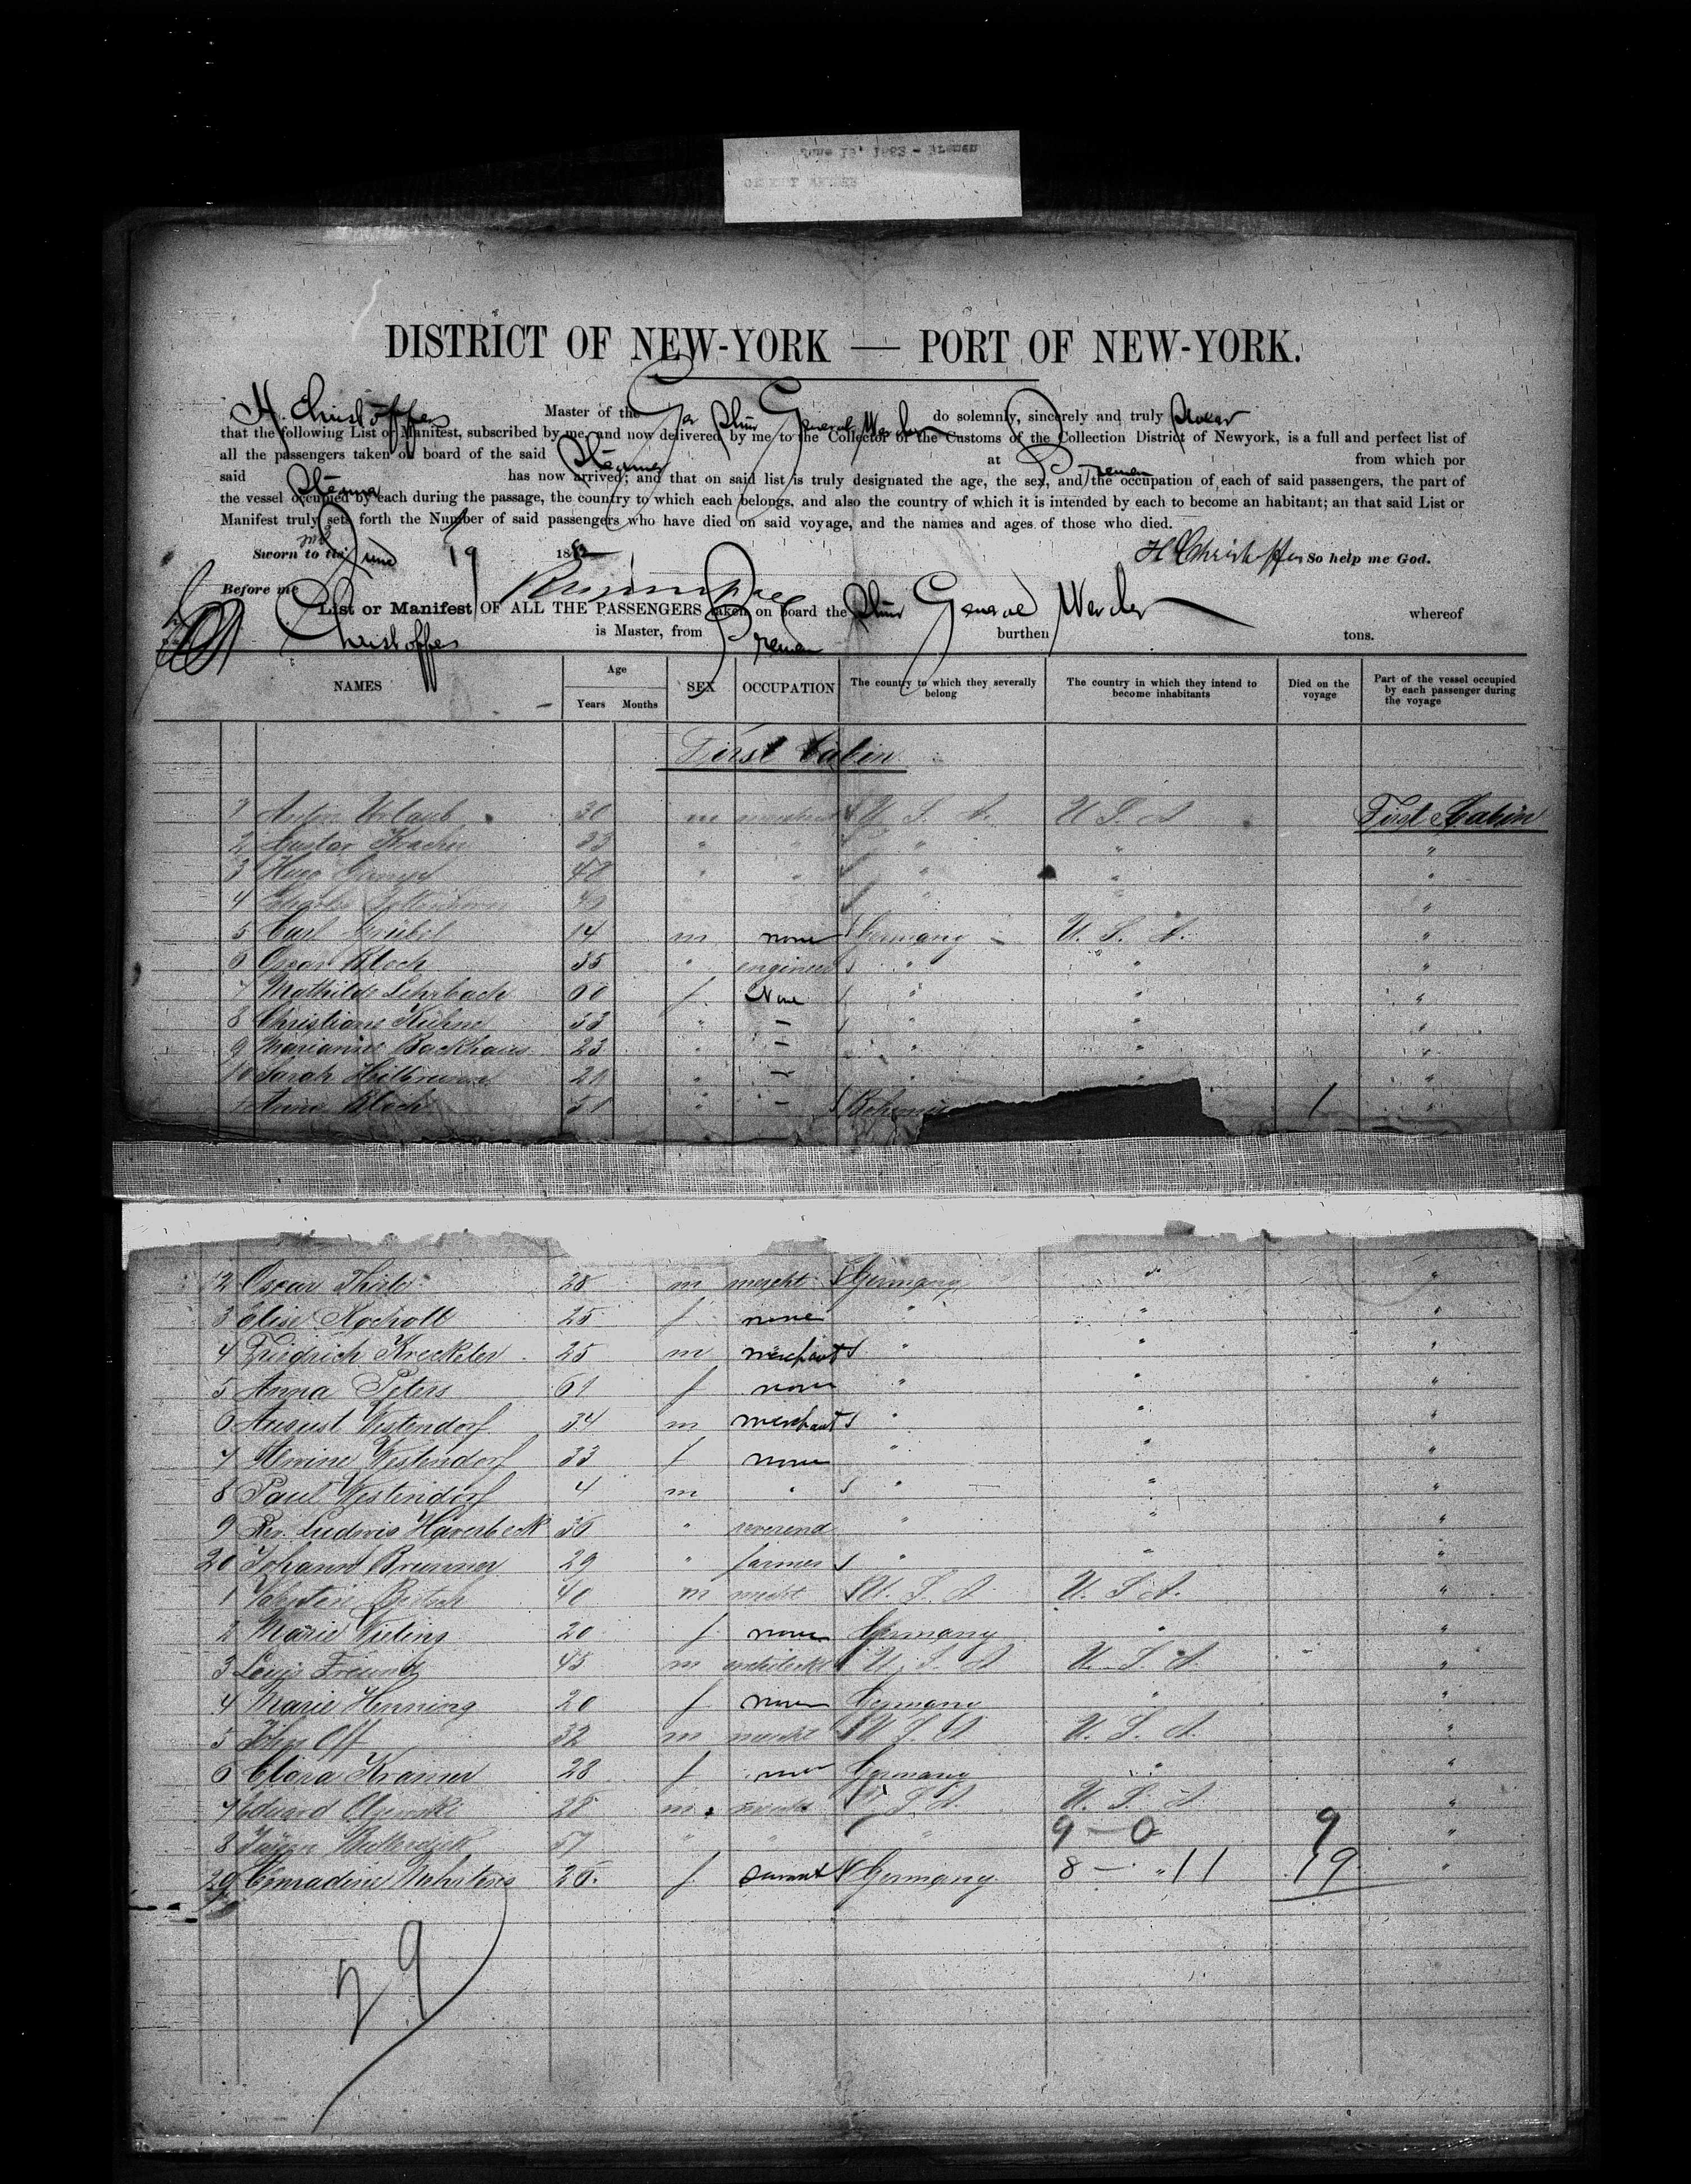 DISTRICT OF NEW-YORK — PORT OF NEW-YORK.
H. Christoffers Master of the Ger Stmr General Werder do solemnly, sincerely and truly swear
that the following List or Manifest, subscribed by me, and now delivered by me to the Collector of the Customs of the Collection District of Newyork, is a full and perfect list of
all the passengers taken on board of the said Steamer at Bremen from which por
said Steamer has now arrived; and that on said list is truly designated the age, the sex, and the occupation of each of said passengers, the part of
the vessel occupied by each during the passage, the country to which each belongs, and also the country of which it is intended by each to become an habitant; an that said List or
Manifest truly sets forth the Number of said passengers who have died on said voyage, and the names and ages of those who died.
Sworn to the June 19 188 H Christoffers So help me God.
Before me
List or Manifest OF ALL THE PASSENGERS taken on board the Stmr General Werder whereof
Christoffers is Master, from Bremen burthen tons.
NAMES Age Years Months SEX OCCUPATION The country to which they severally belong The country in which they intend to become inhabitants Died on the voyage Part of the vessel occupied by each passenger during the voyage
First Cabin
1 Anton Urlaub 30 m U. S. A. U S A First Cabin
2 Gustav 33 " " " " "
3 Hugo 48 " " " " "
4 Charles " " " "
5 Carl 14 m none Germany U. S. A. "
6 Oscar Bloch 35 " engineer " " "
7 Mathilde Lehrbach 60 f. None " " "
8 Christiane Kühne 33 " – " " "
9 Marianne Backhaus 23 " – " " "
10 Sarah Heilbrunn 21 " – " " "
Anna Bloch 51 " – Bohemia 1 "
12 Oscar Thilo 28 m mercht Germany " "
3 Elise Rocholl 25 f none " " "
4 Friedrich Kreckeler 25 m merchant " " "
5 Anna Peters 61 f none " " "
6 August Westendorf 34 m merchant " " "
7 Alwine Westendorf 33 f none " " "
8 Paul Westendorf 4 m " " " "
9 Rev. Ludwig Haverbeck 36 " reverend " " "
20 Johann Brunner 29 " farmer " " "
1 Valentin 40 m mercht U. S. A U. S A. "
2 Marie Wieting 20 f none Germany " "
3 Louis Freund 45 m architekt U. S. A U. S. A. "
4 Marie Henning 20 f none Germany " "
5 John Off 32 m mercht U S A U. S. A. "
6 Clara Kramer 28 f none Germany " "
7 Eduard 28 m. mercht U. S. A. "
8 57 " " " 9 – 0 9 "
29 Conradine 26. f. servant Germany 8 – " 11 19 "
29